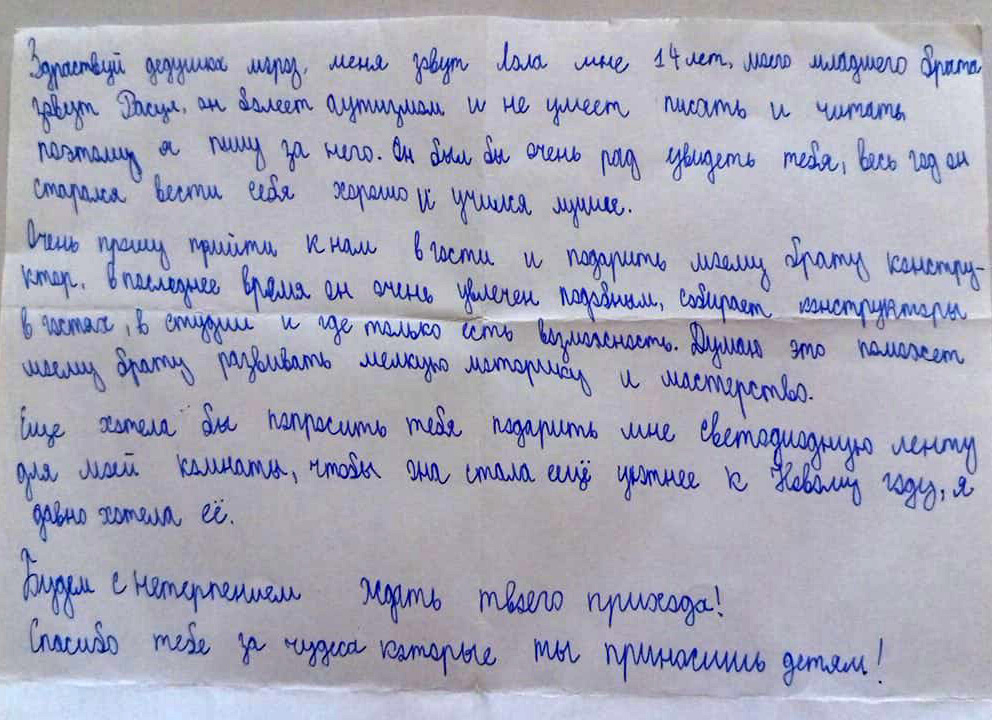 Здраствуй дедушка мороз, меня зовут Лола мне 14 лет, моего младшего брата
зовут Расул, он болеет аутизмом и не умеет писать и читать
поэтому я пишу за него. Он был бы очень рад увидеть тебя, весь год он
старался вести себя хорошо и учился лучше.
Очень прошу прийти к нам в гости и подарить моему брату констру-
ктор, в последнее время он очень увлечен подобным, собирает конструкторы
в гостях, в студии и где только есть возможность. Думаю это поможет
моему брату развивать мелкую моторику и мастерство.
Еще хотела бы попросить тебя подарить мне светодиодную ленту
для моей комнаты, чтобы она стала ещё уютнее к Новому году, я
давно хотела её.
Будем с нетерпением ждать твоего прихода!
Спасибо тебе за чудеса которые ты приносишь детям!